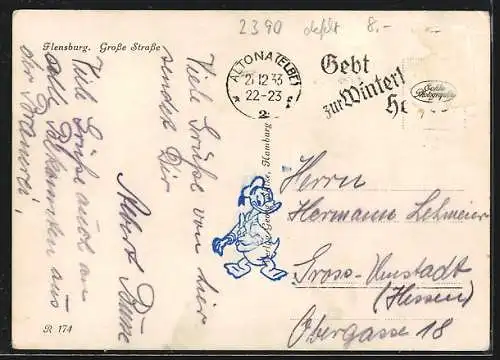 2390 defkt 8.-
Flensburg. Große Straße
ALTONA (ELBE)
21.12.33
22-23
* 2 f
Gebt
zur Winterh
He
Echte
Photographie
Viele Grüße von hier
sendet Dir
Albert
Viele Grüße auch an
alle Bekannten aus
der Brauerei.
Hamburg
Herrn
Hermann Lehmeier
Gross-Umstadt
(Hessen)
Obergasse 18
R 174